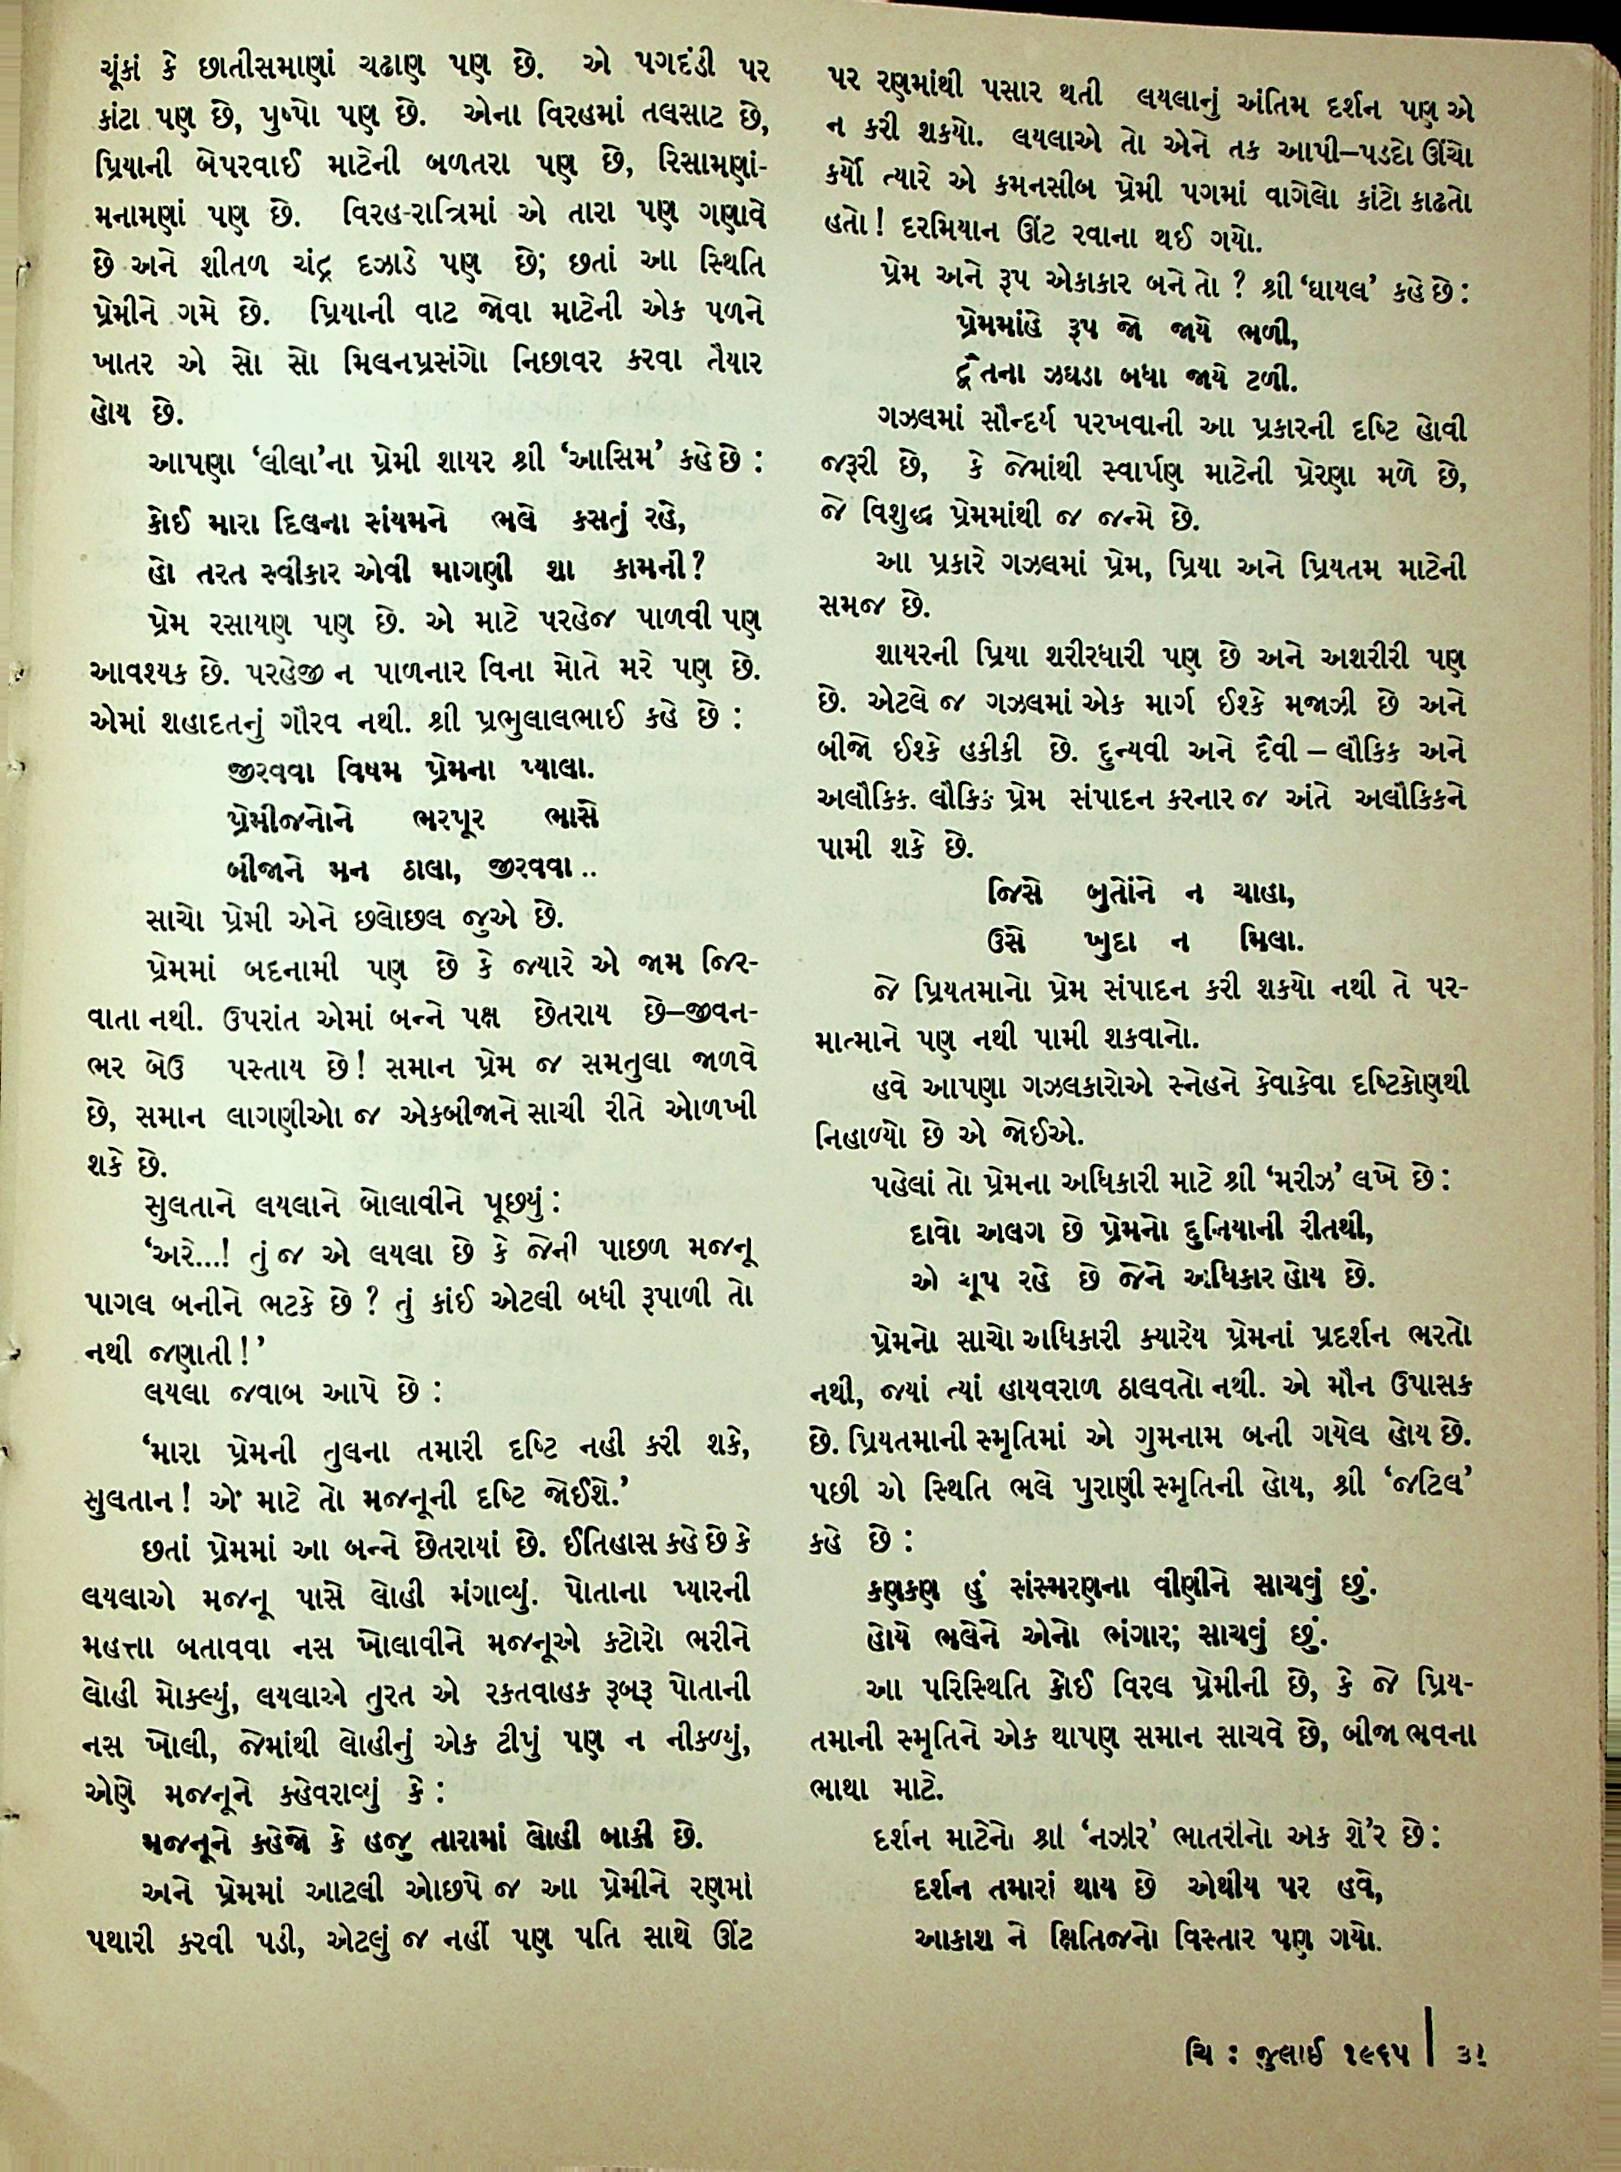 ચૂંકાં કે છાતીસમાણાં ચઢાણ પણ છે. એ પગદંડી પર
કાંટા પણ છે, પુષ્પો પણ છે. એના વિરહમાં તલસાટ છે,
પ્રિયાની બેપરવાઈ માટેની બળતરા પણ છે, રિસામણાં-
મનામણાં પણ છે. વિરહ-રાત્રિમાં એ તારા પણ ગણાવે
છે અને શીતળ ચંદ્ર દઝાડે પણ છે; છતાં આ સ્થિતિ
પ્રેમીને ગમે છે. પ્રિયાની વાટ જોવા માટેની એક પળને
ખાતર એ સો સો મિલનપ્રસંગો નિછાવર કરવા તૈયાર
હોય છે.
આપણા ‘લીલા’ના પ્રેમી શાયર શ્રી ‘આસિમ’ કહે છે :
કોઈ મારા દિલના સંયમને ભલે કસતું રહે,
હો તરત સ્વીકાર એવી માગણી શા કામની?
પ્રેમ રસાયણ પણ છે. એ માટે પરહેજ પાળવી પણ
આવશ્યક છે. પરહેજી ન પાળનાર વિના મોતે મરે પણ છે.
એમાં શહાદતનું ગૌરવ નથી. શ્રી પ્રભુલાલભાઈ કહે છે :
જીરવવા વિષમ પ્રેમના પ્યાલા.
પ્રેમીજનોને ભરપૂર ભાસે
બીજાને મન ઠાલા, જીરવવા..
સાચો પ્રેમી એને છલોછલ જુએ છે.
પ્રેમમાં બદનામી પણ છે કે જ્યારે એ જામ જિર-
વાતા નથી. ઉપરાંત એમાં બન્ને પક્ષ છેતરાય છે–જીવન-
ભર બેઉ પસ્તાય છે! સમાન પ્રેમ જ સમતુલા જાળવે
છે, સમાન લાગણીઓ જ એકબીજાને સાચી રીતે ઓળખી
શકે છે.
સુલતાને લયલાને બોલાવીને પૂછ્યું :
‘અરે...! તું જ એ લયલા છે કે જેની પાછળ મજનૂ
પાગલ બનીને ભટકે છે ? તું કાંઈ એટલી બધી રૂપાળી તો
નથી જણાતી!’
લયલા જવાબ આપે છે :
‘મારા પ્રેમની તુલના તમારી દૃષ્ટિ નહી કરી શકે,
સુલતાન! એ માટે તો મજનૂની દૃષ્ટિ જોઈશે.’
છતાં પ્રેમમાં આ બન્ને છેતરાયાં છે. ઈતિહાસ કહે છે કે
લયલાએ મજનૂ પાસે લોહી મંગાવ્યું. પોતાના પ્યારની
મહત્તા બતાવવા નસ ખોલાવીને મજનૂએ કટોરો ભરીને
લોહી મોકલ્યું, લયલાએ તુરત એ રકતવાહક રૂબરૂ પોતાની
નસ ખોલી, જેમાંથી લોહીનું એક ટીપું પણ ન નીકળ્યું,
એણે મજનૂને કહેવરાવ્યું કે :
મજનૂને કહેજો કે હજુ તારામાં લોહી બાકી છે.
અને પ્રેમમાં આટલી ઓછપે જ આ પ્રેમીને રણમાં
પથારી કરવી પડી, એટલું જ નહીં પણ પતિ સાથે ઊંટ
પર રણમાંથી પસાર થતી લયલાનું અંતિમ દર્શન પણ એ
ન કરી શકયો. લયલાએ તો એને તક આપી–પડદો ઊંચો
કર્યો ત્યારે એ કમનસીબ પ્રેમી પગમાં વાગેલો કાંટો કાઢતો
હતો! દરમિયાન ઊંટ રવાના થઈ ગયો.
પ્રેમ અને રૂપ એકાકાર બને તો ? શ્રી ‘ઘાયલ’ કહે છે :
પ્રેમમાંહે રૂપ જો જાયે ભળી,
દ્વૈતના ઝઘડા બધા જાયે ટળી.
ગઝલમાં સૌન્દર્ય પરખવાની આ પ્રકારની દૃષ્ટિ હોવી
જરૂરી છે, કે જેમાંથી સ્વાર્પણ માટેની પ્રેરણા મળે છે,
જે વિશુદ્ધ પ્રેમમાંથી જ જન્મે છે.
આ પ્રકારે ગઝલમાં પ્રેમ, પ્રિયા અને પ્રિયતમ માટેની
સમજ છે.
શાયરની પ્રિયા શરીરધારી પણ છે અને અશરીરી પણ
છે. એટલે જ ગઝલમાં એક માર્ગ ઈશ્કે મજાઝી છે અને
બીજો ઈશ્કે હકીકી છે. દુન્યવી અને દૈવી – લૌકિક અને
અલૌકિક. લૌકિક પ્રેમ સંપાદન કરનાર જ અંતે અલૌકિકને
પામી શકે છે.
જિસે બુતોંને ન ચાહા,
ઉસે ખુદા ન મિલા.
જે પ્રિયતમાનો પ્રેમ સંપાદન કરી શકયો નથી તે પર-
માત્માને પણ નથી પામી શકવાનો.
હવે આપણા ગઝલકારોએ સ્નેહને કેવાકેવા દૃષ્ટિકોણથી
નિહાળ્યો છે એ જોઈએ.
પહેલાં તો પ્રેમના અધિકારી માટે શ્રી ‘મરીઝ’ લખે છે :
દાવો અલગ છે પ્રેમનો દુનિયાની રીતથી,
એ ચૂપ રહે છે જેને અધિકાર હોય છે.
પ્રેમનો સાચો અધિકારી ક્યારેય પ્રેમનાં પ્રદર્શન ભરતો
નથી, જ્યાં ત્યાં હાયવરાળ ઠાલવતો નથી. એ મૌન ઉપાસક
છે. પ્રિયતમાની સ્મૃતિમાં એ ગુમનામ બની ગયેલ હોય છે.
પછી એ સ્થિતિ ભલે પુરાણી સ્મૃતિની હોય, શ્રી ‘જટિલ’
કહે છે :
કણકણ હું સંસ્મરણના વીણીને સાચવું છું.
હોયે ભલેને એનો ભંગાર; સાચવું છું.
આ પરિસ્થિતિ કોઈ વિરલ પ્રેમીની છે, કે જે પ્રિય-
તમાની સ્મૃતિને એક થાપણ સમાન સાચવે છે, બીજા ભવના
ભાથા માટે.
દર્શન માટેનો શ્રી ‘નઝીર’ ભાતરીનો એક શે’ર છે :
દર્શન તમારાં થાય છે એથીય પર હવે,
આકાશ ને ક્ષિતિજનો વિસ્તાર પણ ગયો.
ચિ : જુલાઈ ૧૯૬૫ | ૩૧